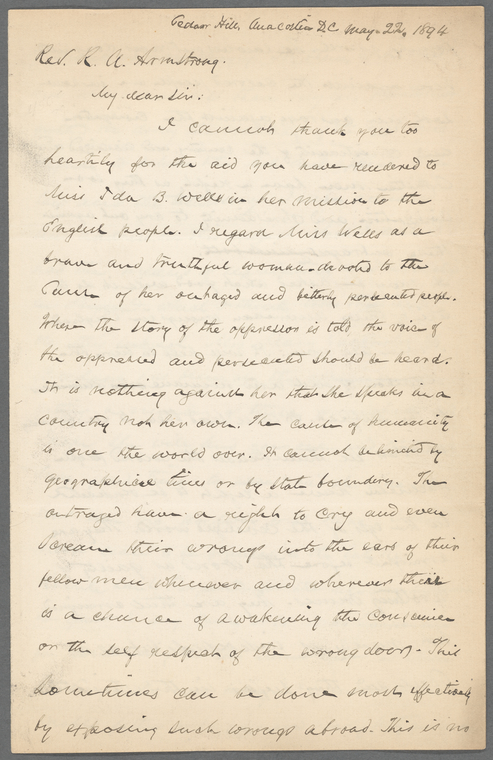 Cedar Hill, Anacostia D.C. May. 22, 1894
Rev. R. A. Armstrong.
My dear Sir:
I cannot thank you too
heartily for the aid you have rendered to
Miss Ida B. Wells in her mission to the
English people. I regard Miss Wells as a
brave and truthful woman devoted to the
Cause of her outraged and bitterly persecuted people.
Where the story of the oppressor is told the voice of
the oppressed and persecuted should be heard.
It is nothing against her that she speaks in a
country not her own. The cause of humanity
is one the world over. It cannot be limited by
geographical lines or by State boundery. The
outraged have a right to cry and even
scream their wrongs into the ears of their
fellow men whenever and wherever their
is a chance of awakening the conscience
or the self respect of the wrong doers. This
sometimes can be done most effectively
by exposing such wrongs abroad. This is no